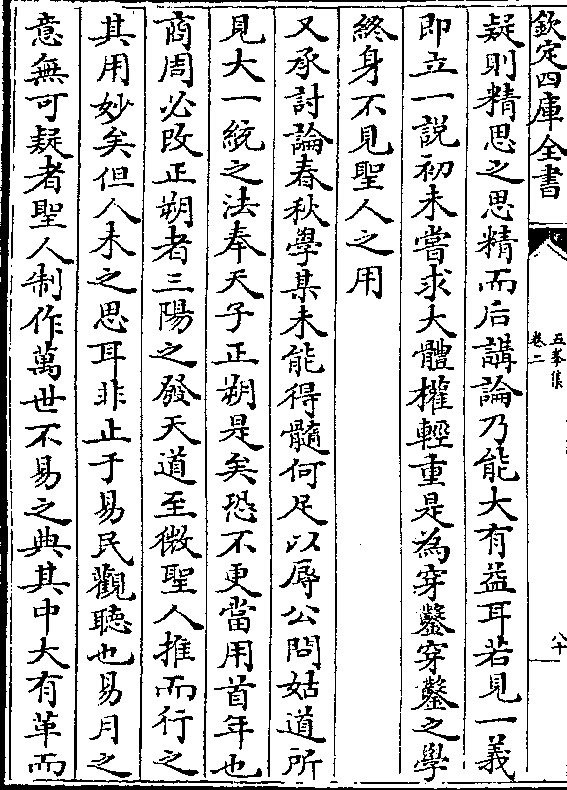 欽定四庫全書
五峯集
卷二
八十
疑則精思之思精而后講論乃能大有益耳若見一義
即立一說初未嘗求大體權輕重是為穿鑿穿鑿之學
終身不見聖人之用
又承討論春秋學某未能得髓何足以辱公問姑道所
見大一統之法奉天子正朔是矣恐不更當用首年也
商周必改正朔者三陽之發天道至微聖人推而行之
其用妙矣但人未之思耳非止于易民觀聽也易月之
意無可疑者聖人制作萬世不易之典其中大有革而